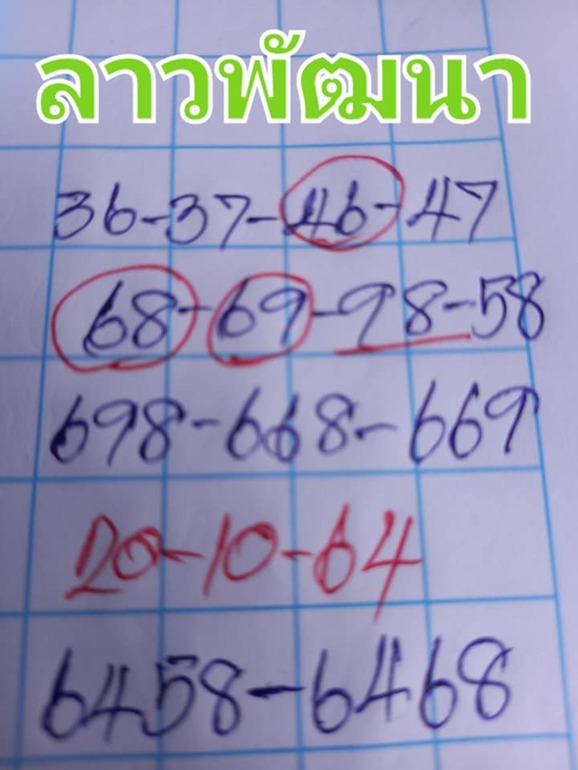 ลาวพัฒนา
36-37-46-47
68-69-98-58
698-668-669
20-10-64
6458-6468